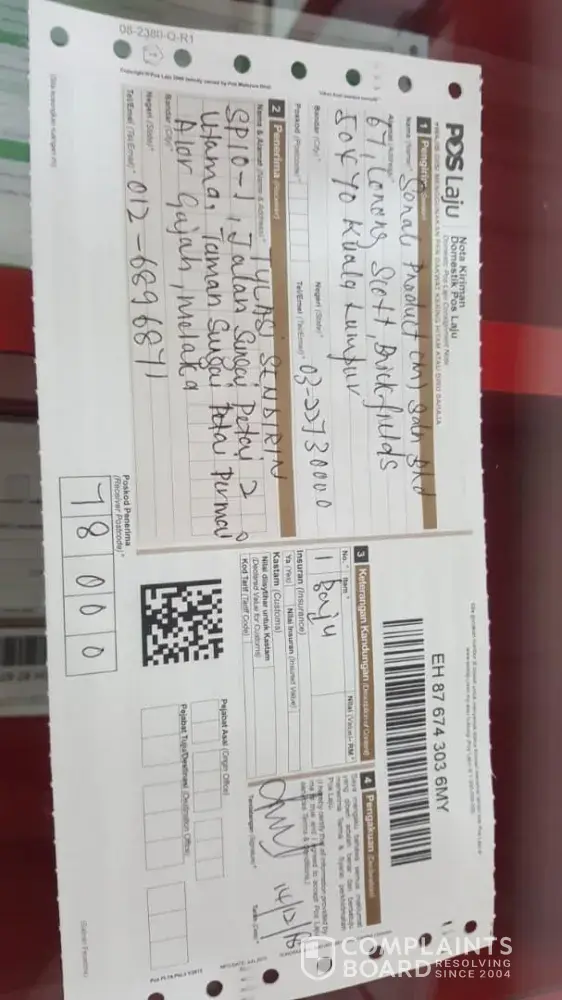 08-2380-Q-R1
POS Laju
Nota Kiriman
Domestik Pos Laju
Domestic Pos Laju Consignment Note
1 Pengirim (Sender)
Name (Name)
Sonali Product (M) Sdn Bhd
67, Lorong Scott, Brickfields
50470 Kuala Lumpur
Bandar (City)
Negeri (State)
Poskod (Postcode)
Tel/Emel (Tel/Email)
03-22730000
2 Penerima (Receiver)
Name & Alamat (Name & Address)
TULASI SENDIRIN
SP10-1, Jalan Sungai Petai 2
Utama, Taman Sungai Petai Permai
Alor Gajah, Melaka
Bandar (City)
Negeri (State)
Tel/Emel (Tel/Email)
012-6896871
Poskod Penerima
(Receiver Postcode)
78000
EH 87 674 303 6MY
3 Keterangan Kandungan (Description of Content)
No.
Item
Nilai (Value) - RM
1 Baju
Insuran (Insurance)
Ya (Yes)
Nilai Insuran (Insured Value)
Kastam (Customs)
Nilai diisytihar untuk Kastam
(Declared Value for Customs)
Kod Tarif (Tariff Code)
Pejabat Asal (Origin Office)
Pejabat Tuju/Destinasi (Destination Office)
4 Pengakuan (Declaration)
Tandatangan (Signature)
Tarikh (Date)
14/12/18
COMPLAINTS
BOARD
RESOLVING
SINCE 2004